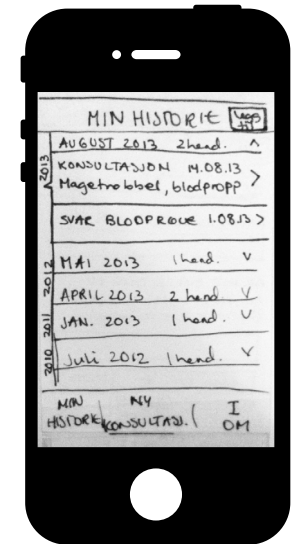 MIN HISTORIE Legg til
AUGUST 2013 2 hend.
KONSULTASJON 14.08.13
Magetrobbel, blodpropp
SVAR BLODPRØVE 1.08.13
MAI 2013 1 hend.
APRIL 2013 2 hend
JAN. 2013 1 hend.
Juli 2012 1 hend.
2013
2012
2011
2010
MIN HISTORIE
NY KONSULTASJ.
I
OM